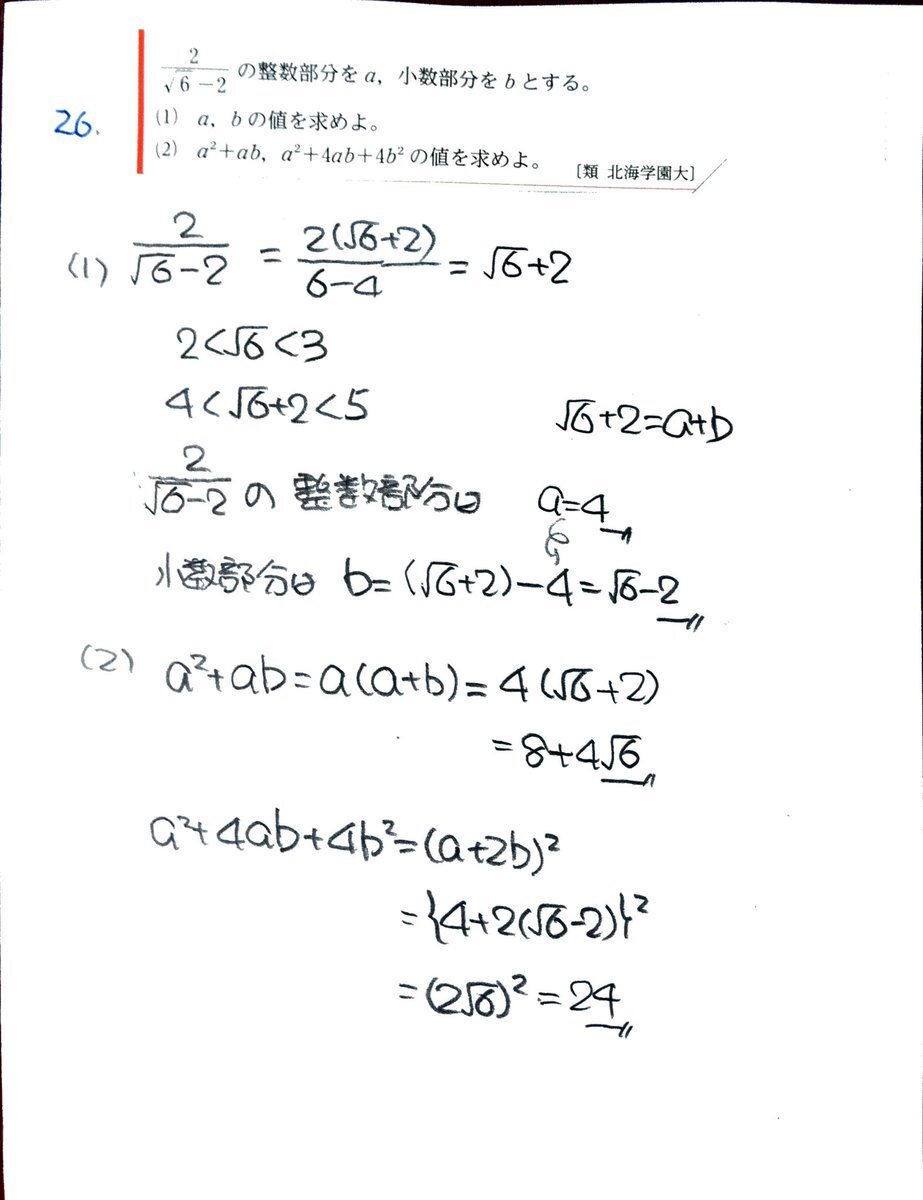 26.
2/(√6-2) の整数部分を a，小数部分を b とする。
(1) a，b の値を求めよ。
(2) a²+ab，a²+4ab+4b² の値を求めよ。
［類 北海学園大］
(1) 2/(√6-2) = 2(√6+2)/(6-4) = √6+2
2<√6<3
4<√6+2<5
√6+2=a+b
2/(√6-2) の 整数部分は a=4
小数部分は b=(√6+2)-4=√6-2
(2) a²+ab=a(a+b)=4(√6+2)
=8+4√6
a²+4ab+4b²=(a+2b)²
={4+2(√6-2)}²
=(2√6)²=24